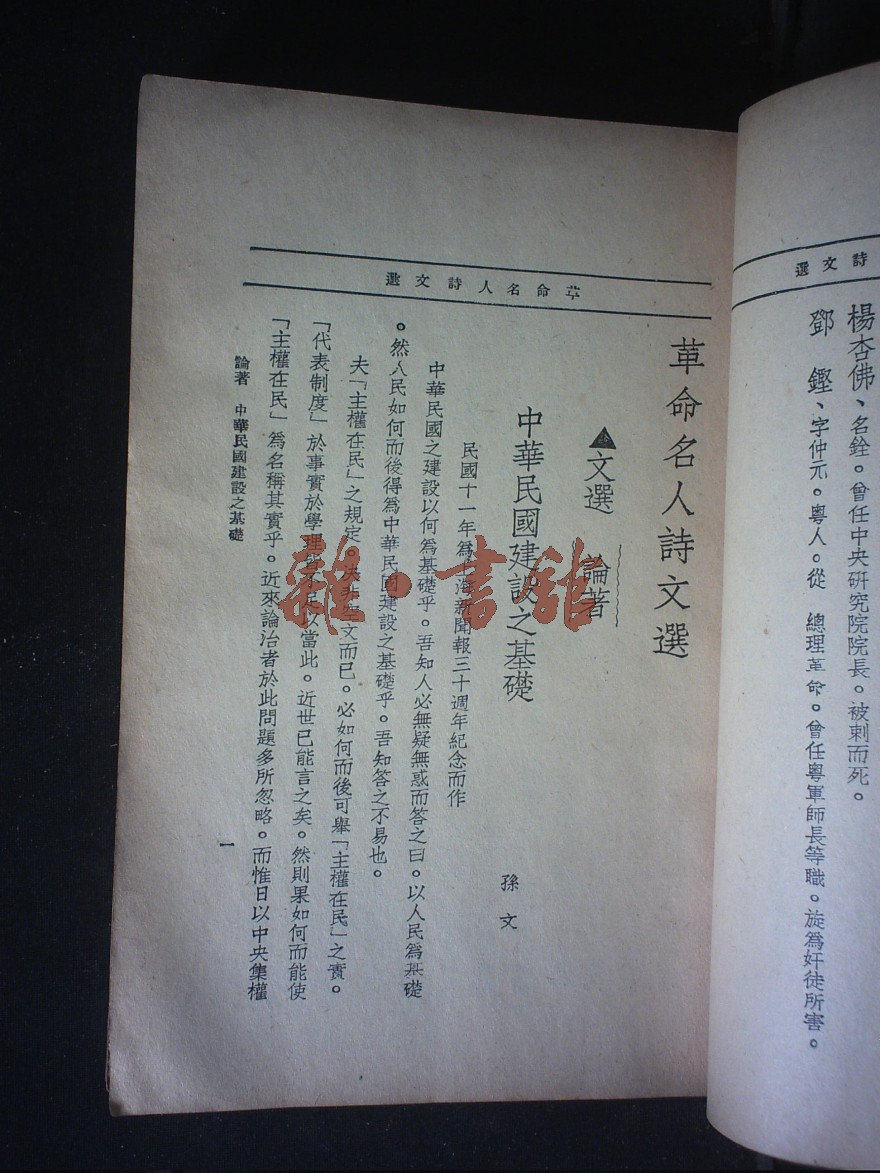 詩文選
楊杏佛、名銓。曾任中央研究院院長。被刺而死。
鄧　鏗、字仲元。粵人。從　總理革命。曾任粵軍師長等職。旋爲奸徒所害。
革命名人詩文選
革命名人詩文選
▲文選　論著
中華民國建設之基礎
孫　文
民國十一年爲上海新聞報三十週年紀念而作
中華民國之建設以何爲基礎乎。吾知人必無疑無惑而答之曰。以人民爲基礎
。然人民如何而後得爲中華民國建設之基礎乎。吾知答之不易也。
夫「主權在民」之規定。決非空文而已。必如何而後可舉「主權在民」之實。
「代表制度」於事實於學理皆不足以當此。近世已能言之矣。然則果如何而能使
「主權在民」爲名稱其實乎。近來論治者於此問題多所忽略。而惟日以中央集權
論著　中華民國建設之基礎
一
雜·書館